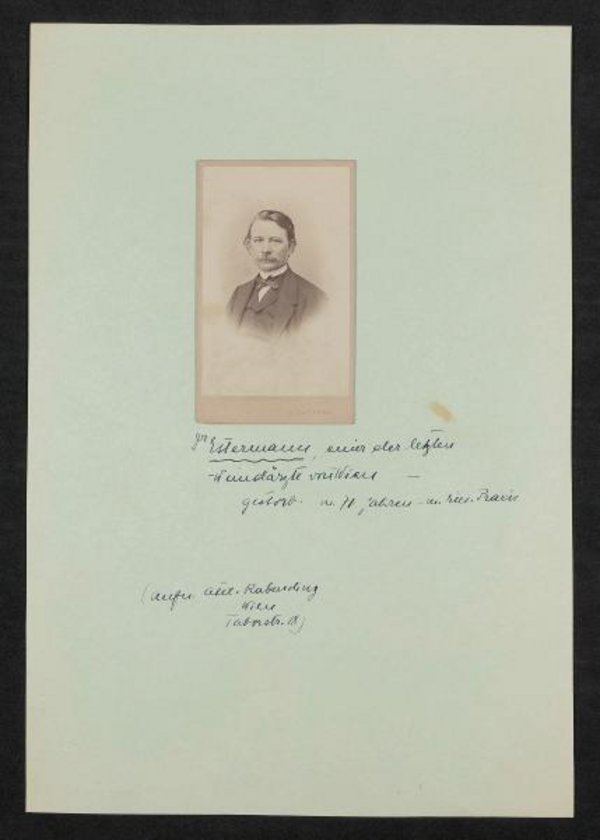 Estermann, einer der letzten
Wundärzte von Wien —
gestorb. Jahren Praxis
(Aufn. Atel. Rabending
Wien
Taborstr. 18)